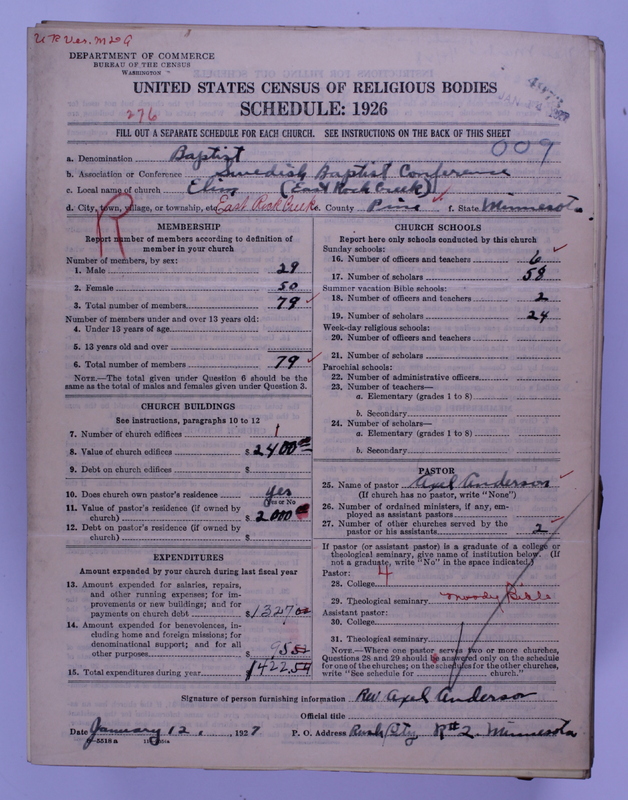 U B Ves. M 20 G
DEPARTMENT OF COMMERCE
BUREAU OF THE CENSUS
WASHINGTON
UNITED STATES CENSUS OF RELIGIOUS BODIES
SCHEDULE: 1926
276
FILL OUT A SEPARATE SCHEDULE FOR EACH CHURCH. SEE INSTRUCTIONS ON THE BACK OF THIS SHEET
009
a. Denomination Baptist
b. Association or Conference Swedish Baptist Conference
c. Local name of church Elim (East Rock Creek)
d. City, town, village, or township, etc. East Rock Creek e. County Pine f. State Minnesota
R
MEMBERSHIP
Report number of members according to definition of
member in your church
Number of members, by sex:
1. Male 29
2. Female 50
3. Total number of members 79
Number of members under and over 13 years old:
4. Under 13 years of age
5. 13 years old and over
6. Total number of members 79
NOTE.—The total given under Question 6 should be the
same as the total of males and females given under Question 3.
CHURCH BUILDINGS
See instructions, paragraphs 10 to 12
7. Number of church edifices 1
8. Value of church edifices $ 2400.00
9. Debt on church edifices $
10. Does church own pastor's residence yes
(Yes or No
11. Value of pastor's residence (if owned by
church) $ 2000
12. Debt on pastor's residence (if owned by
church) $
EXPENDITURES
Amount expended by your church during last fiscal year
13. Amount expended for salaries, repairs,
and other running expenses; for im-
provements or new buildings; and for
payments on church debt $ 1327.02
14. Amount expended for benevolences, in-
cluding home and foreign missions; for
denominational support; and for all
other purposes $ 95.52
15. Total expenditures during year 1422.54
CHURCH SCHOOLS
Report here only schools conducted by this church
Sunday schools:
16. Number of officers and teachers 6
17. Number of scholars 58
Summer vacation Bible schools:
18. Number of officers and teachers 2
19. Number of scholars 24
Week-day religious schools:
20. Number of officers and teachers
21. Number of scholars
Parochial schools:
22. Number of administrative officers
23. Number of teachers—
a. Elementary (grades 1 to 8)
b. Secondary
24. Number of scholars—
a. Elementary (grades 1 to 8)
b. Secondary
PASTOR
25. Name of pastor Axel Anderson
(If church has no pastor, write "None")
26. Number of ordained ministers, if any, em-
ployed as assistant pastors
27. Number of other churches served by the
pastor or his assistants 2
If pastor (or assistant pastor) is a graduate of a college or
theological seminary, give name of institution below. (If
not a graduate, write "No" in the space indicated.)
Pastor: 4
28. College
29. Theological seminary Moody Bible
Assistant pastor:
30. College
31. Theological seminary
NOTE.—Where one pastor serves two or more churches,
Questions 28 and 29 should be answered only on the schedule
for one of the churches; on the schedules for the other churches,
write "See schedule for church."
Signature of person furnishing information Rev Axel Anderson
Official title
Date January 12, 1927 P. O. Address Rush City R#2. Minnesota